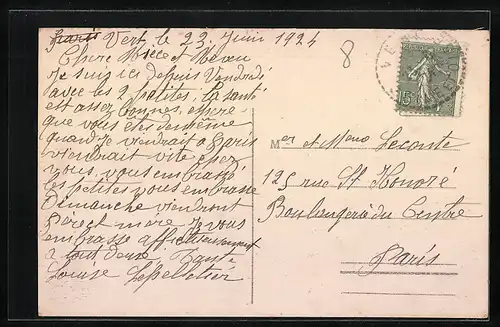 Paris Vert, le 23 Juin 1924
Chere Niece et Neveu
Je suis ici depuis Vendredi
avec les 2 petites, la santé
est assez bonnes, espère
que vous êtes de même
quand je viendrait a Paris
viendrait vite chez
vous, vous embrassé
les petites vous embrasse
Dimanche viendront
Père et mère, Je vous
embrasse affectueusement
a tout deux. Tante
Louise Lepelletier
8
15
Mer et Meme Leconte
125 rue St Honoré
Boulangerie du Centre
Paris